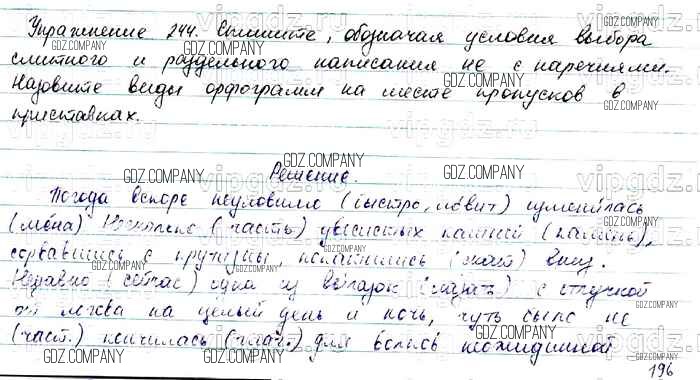 Упражнение 244. Спишите, обозначая условия выбора
слитного и раздельного написания не с наречиями.
Назовите виды орфограмм на месте пропусков в
приставках.
Решение.
Погода вскоре неуловимо (быстро, ловит) изменилась
(мена) Несколько (часть) увесистых камней (камень),
сорвавшись с крутизны, покатились (кат) вниз.
Недавно (сейчас) одна из вылазок (лазать) с
на целый день и ночь, чуть было не
(част.) кончилась (глаг.) для неожиданной
196
GDZ.COMPANY
vipgdz.ru